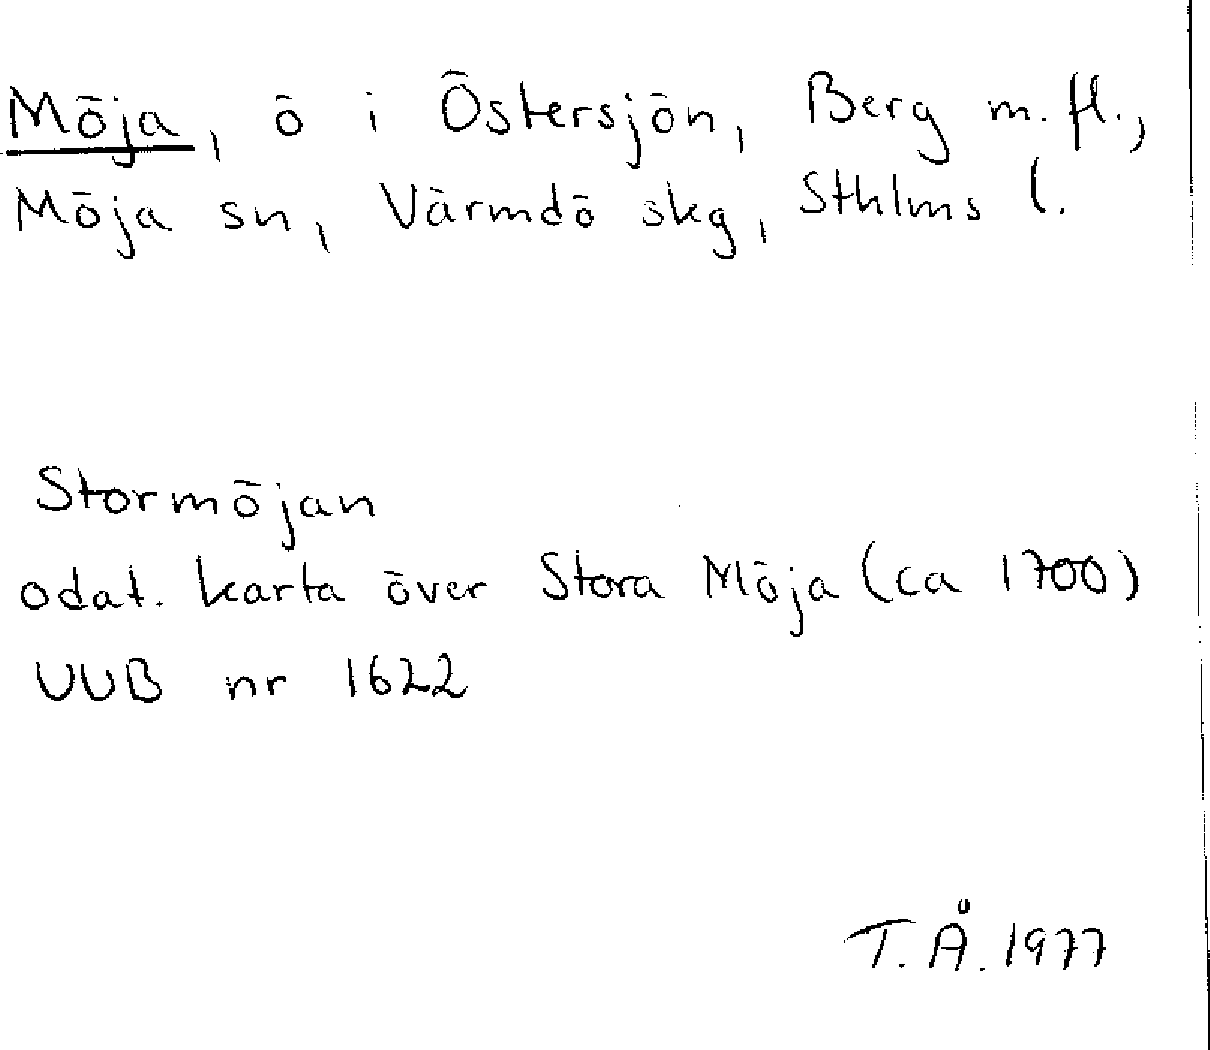 Möja, ö i Östersjön, Berg m. fl.,
Möja sn, Värmdö skg, Sthlms l.
Stormöjan
odat. karta över Stora Möja (ca 1700)
UUB nr 1622
T. Å. 1977